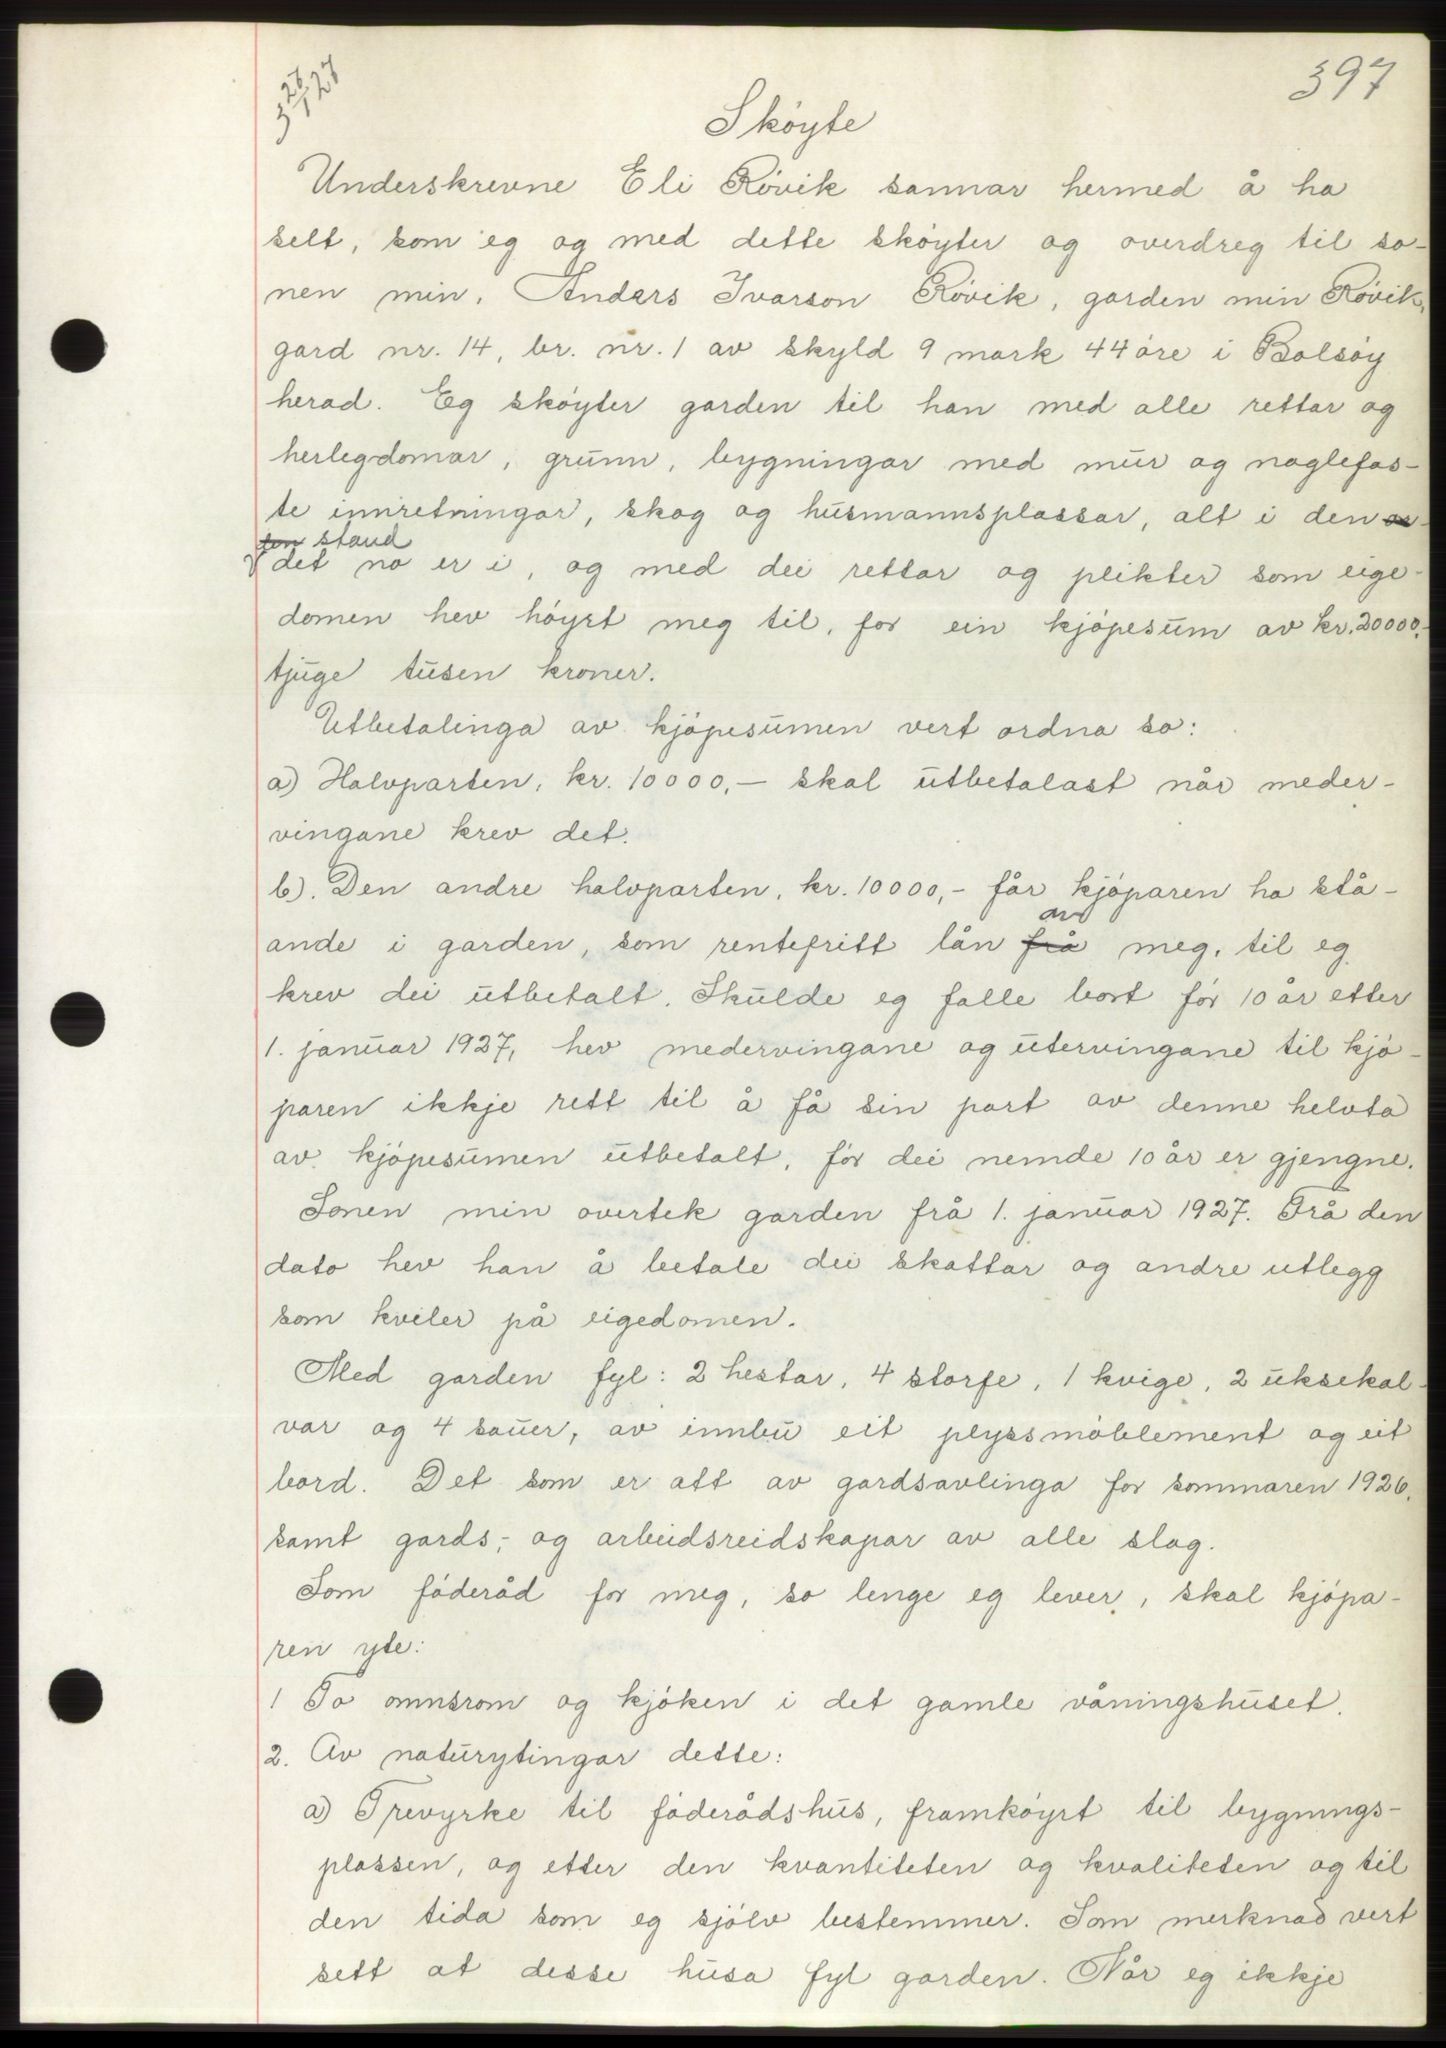 28/3 1927
397
Skøyte
Underskrevne Eli Røvik sannar hermed å ha
selt, som eg og med dette skøyter og overdreg til so-
nen min, Anders Ivarson Røvik, garden min Røvik,
gard nr. 14, br. nr. 1 av skyld 9 mark 44 øre i Bolsøy
herad. Eg skøyter garden til han med alle rettar og
herlegdomar, grunn, bygningar med mur og naglefas-
te innretningar, skog og husmannsplassar, alt i den
stand
det no er i, og med dei rettar og plikter som eige-
domen hev høyrt meg til, for ein kjøpesum av kr. 20000,-
tjuge tusen kroner.
Utbetalinga av kjøpesumen vert ordna so:
a) Halvparten, kr. 10000,- skal utbetalast når meder-
vingane krev det.
b). Den andre halvparten, kr. 10000,- får kjøparen ha stå-
ande i garden, som rentefritt lån frå av meg, til eg
krev dei utbetalt. Skulde eg falle bort før 10 år etter
1. januar 1927, hev medervingane og utervingane til kjø-
paren ikkje rett til å få sin part av denne helvta
av kjøpesumen utbetalt, før dei nemde 10 år er gjengne.
Sonen min overtek garden frå 1. januar 1927. Frå den
dato hev han å betale dei skattar og andre utlegg
som kviler på eigedomen.
Med garden fyl: 2 hestar, 4 storfe, 1 kvige, 2 uksekal-
var og 4 sauer, av innbu eit plyssmøblement og eit
bord. Det som er att av gardsavlinga for sommaren 1926,
samt gards,- og arbeidsreidskapar av alle slag.
Som føderåd for meg, so lenge eg lever, skal kjøpa-
ren yte:
1 To omnsrom og kjøken i det gamle våningshuset.
2. Av naturytingar dette:
a) Trevyrke til føderådshus, framkøyrt til bygnings-
plassen, og etter den kvantiteten og kvaliteten og til
den tida som eg sjølv bestemmer. Som merknad vert
sett at desse husa fyl garden. Når eg ikkje